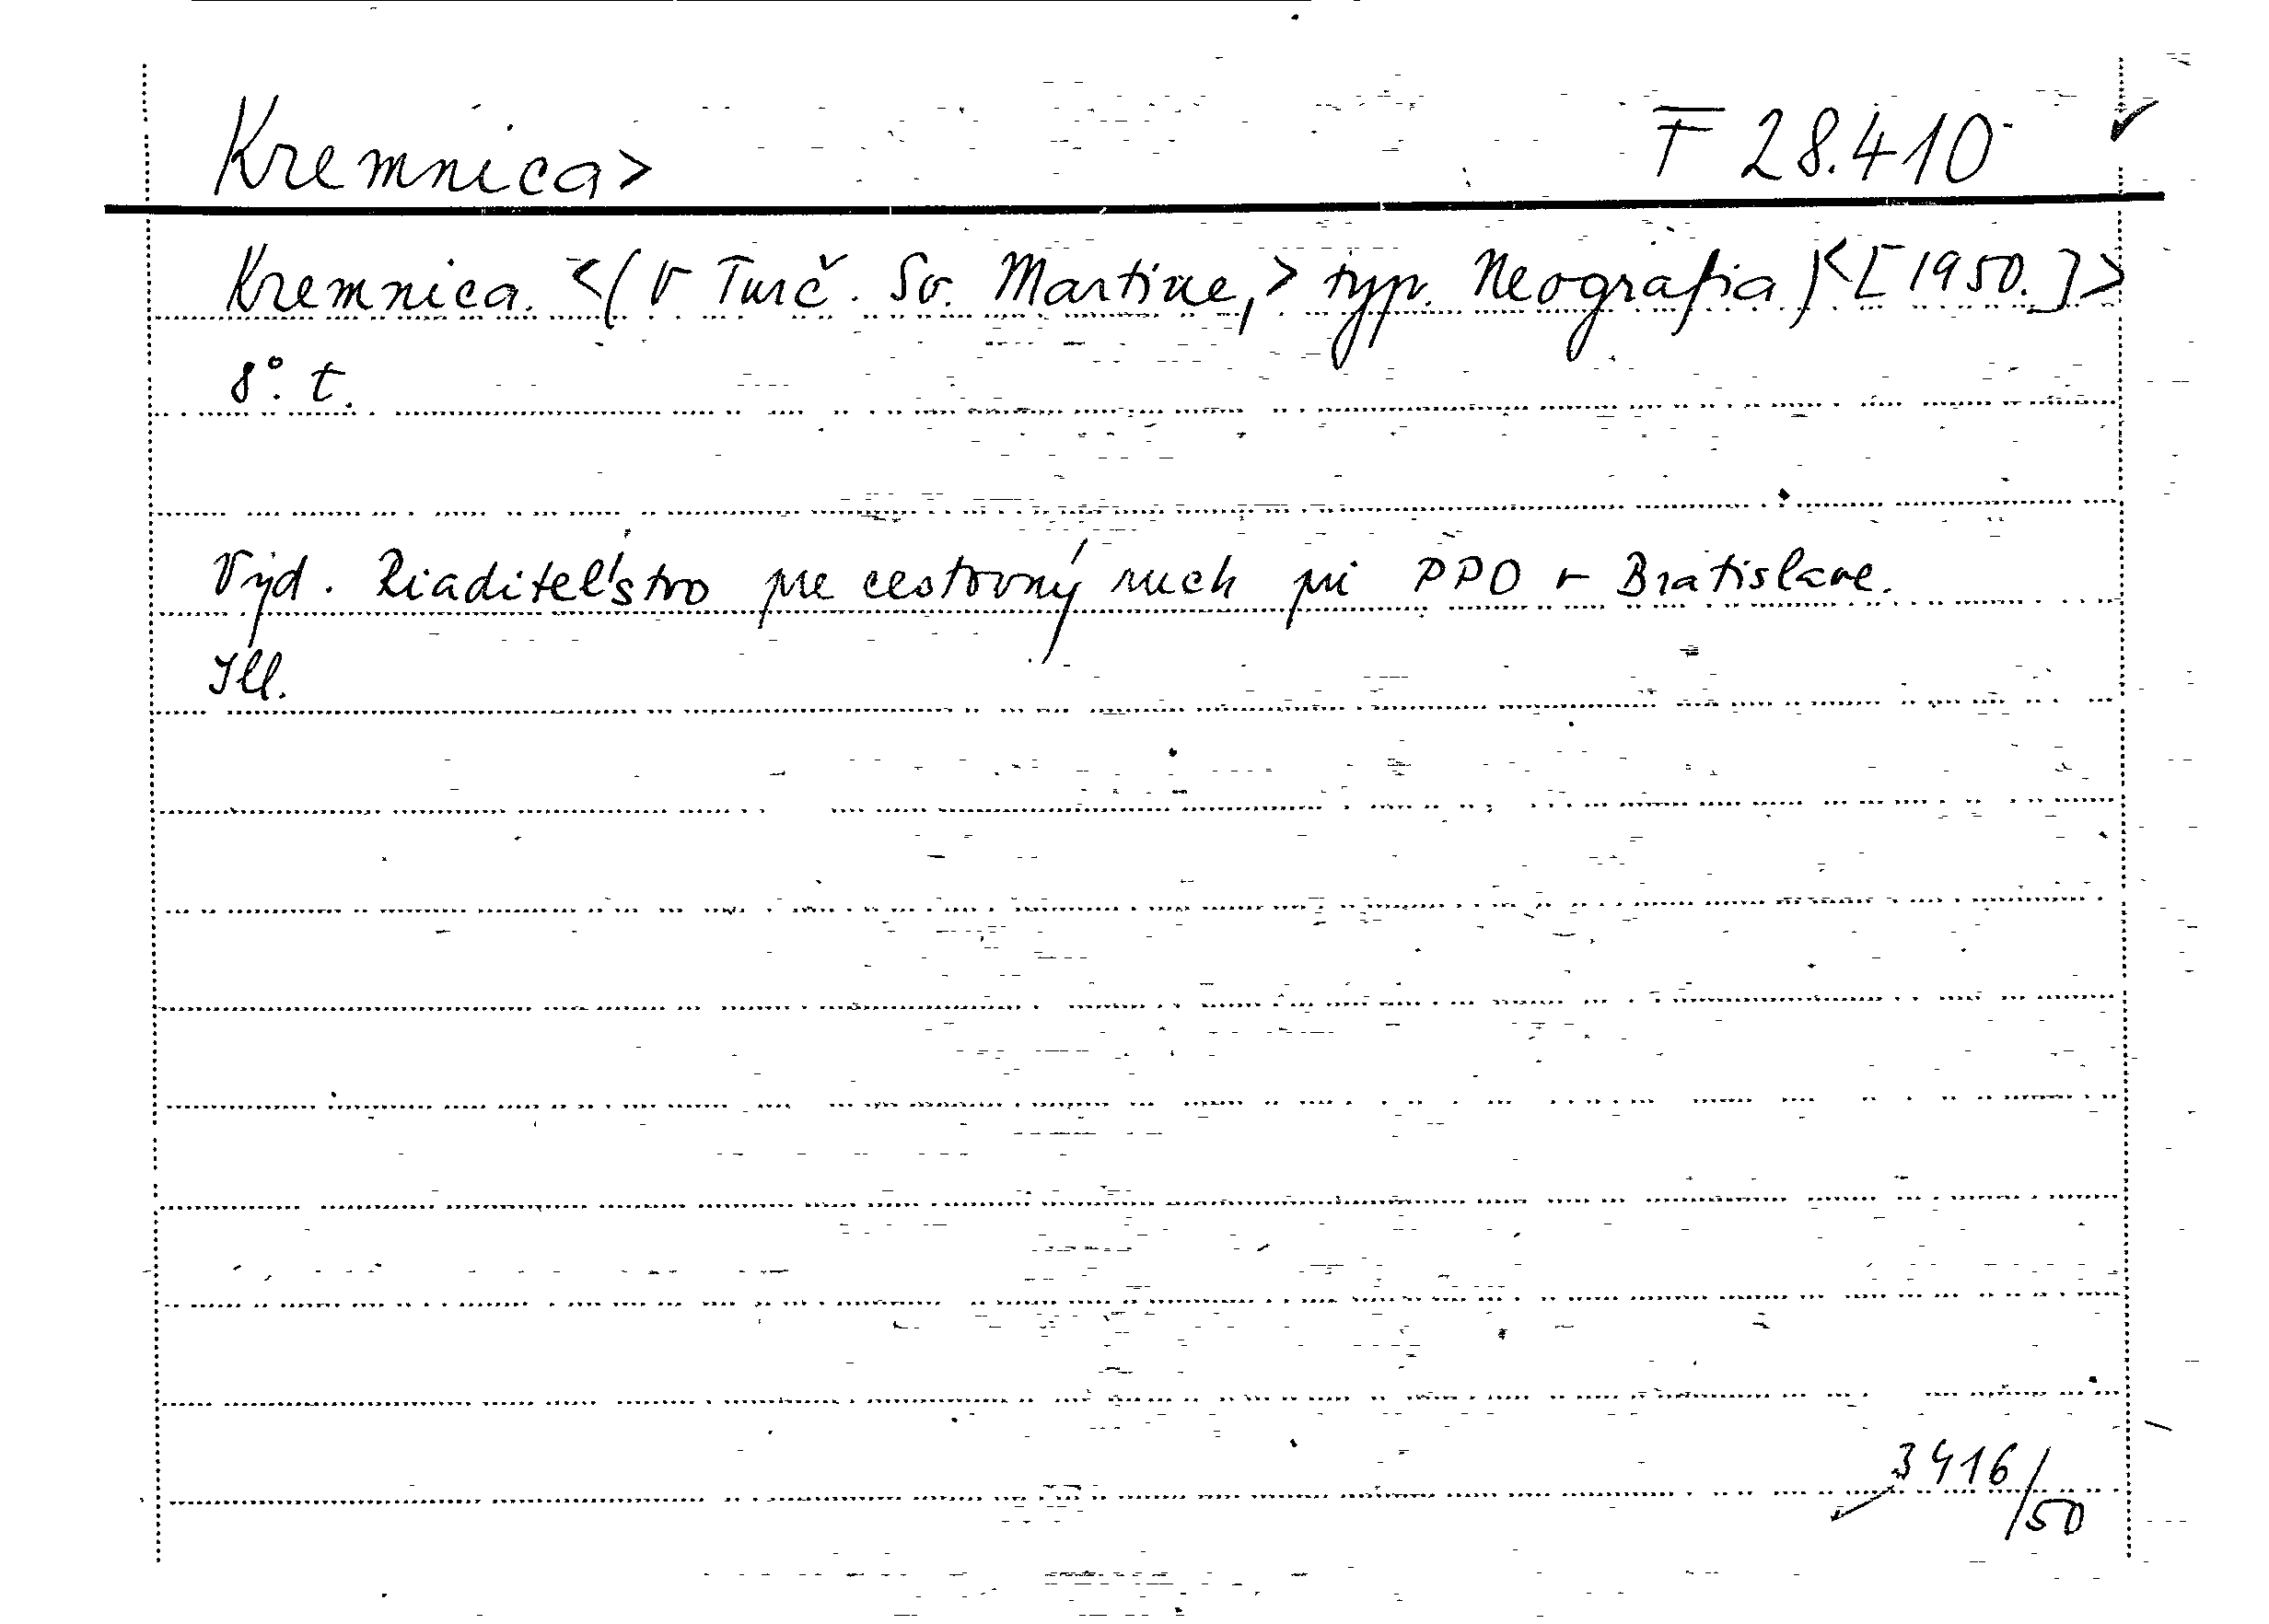 Kremnica> F 28.410
Kremnica. <(V Turč. Sv. Martine,> typ. Neografia)<[1950.]>
8°. t.
Vyd. Riaditeľstvo pre cestovný ruch pri PPO v Bratislave.
Ill.
3416/50